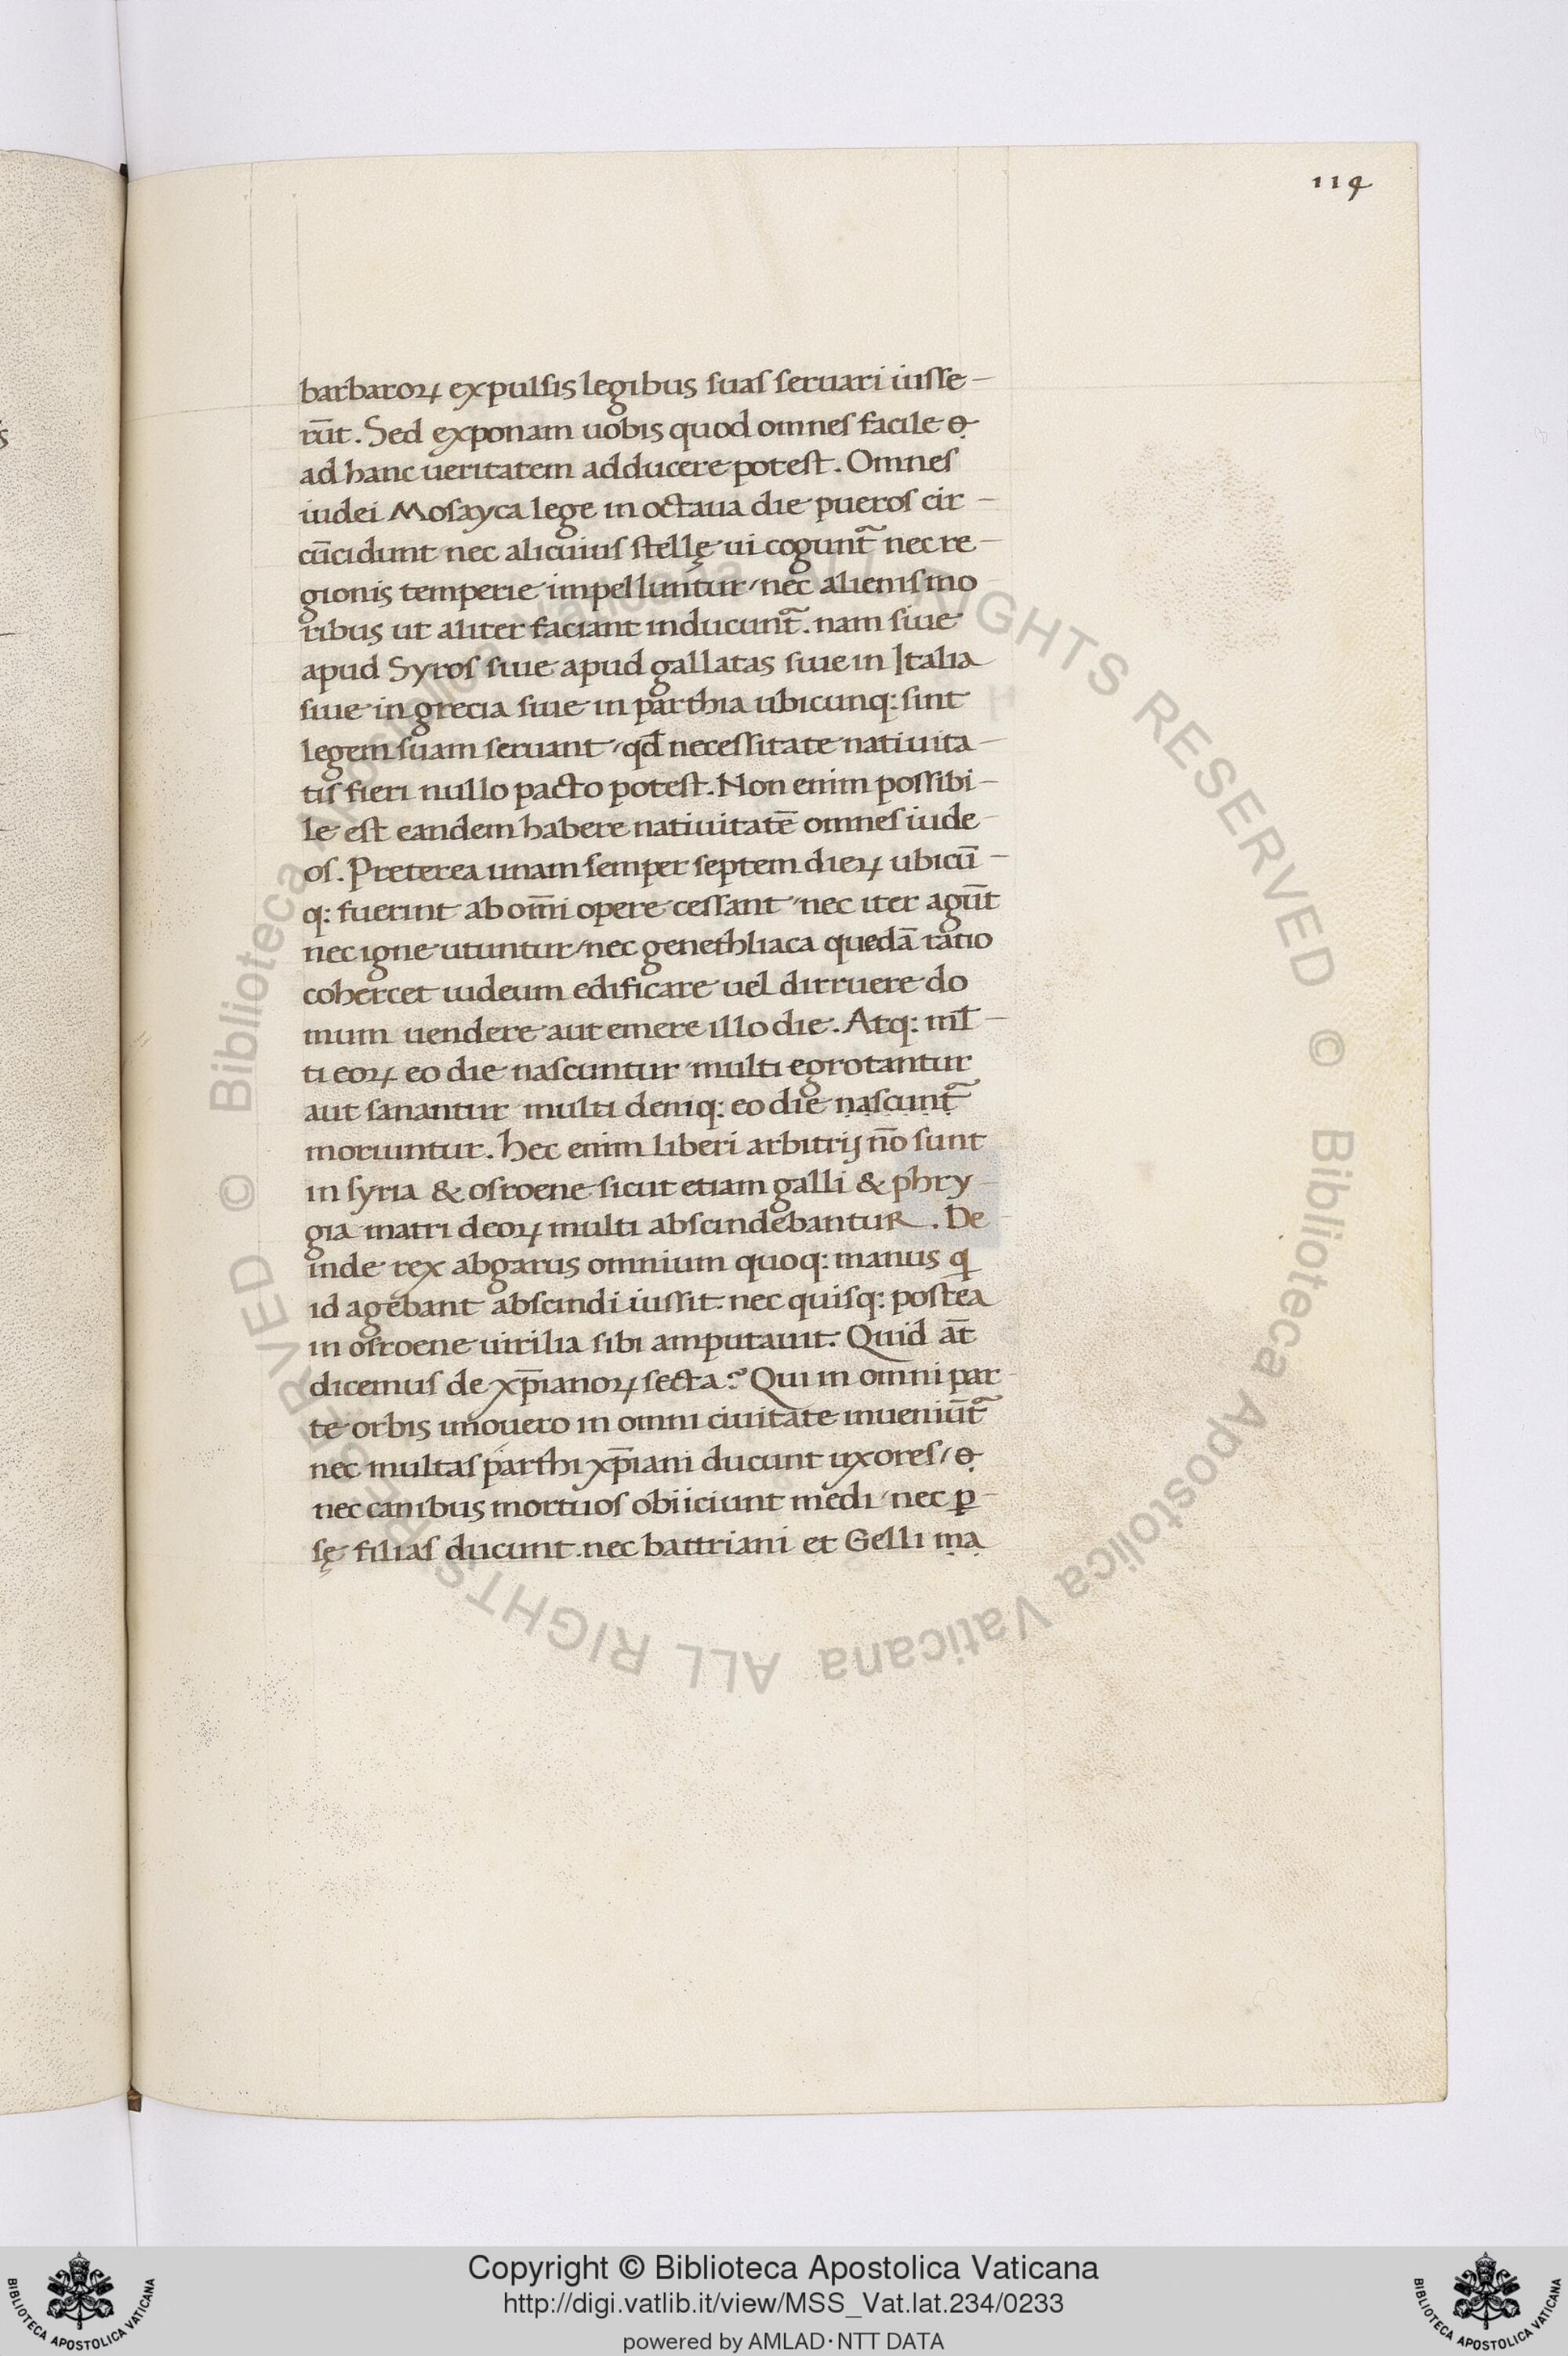 114
barbaroꝝ expulsis legibus suas seruari iusse-
rūt. Sed exponam uobis quod omnes facile ẹ
ad hanc ueritatem adducere potest. Omnes
iudei Mosayca lege in octaua die pueros cir-
cūcidunt nec alicuius stellę ui cogunt᷑ nec re-
gionis temperie impelluntur / nec alienis mo
ribus ut aliter faciant inducunt᷑. nam siue
apud Syros siue apud gallatas siue in Italia
siue in grecia siue in parthia ubicunq: sint
legem suam seruant / qd̄ necessitate natiuita-
tis fieri nullo pacto potest. Non enim possibi-
le est eandem habere natiuitatē omnes iude-
os. Preterea unam semper septem dieꝝ ubicū-
q: fuerint ab om̄i opere cessant / nec iter agūt
nec igne utuntur / nec genethliaca quedā ratio
cohercet iudeum edificare uel dirruere do
mum uendere aut emere illo die. Atq: ml̄-
ti eoꝝ eo die nascuntur / multi egrotantur
aut sanantur / multi deniq: eo die ṇạṣc̣ụṇṭ᷑
moriuntur. Hec enim liberi arbitrij nō sunt
in syria & osroene sicut etiam galli & phry-
gia matri deoꝝ multi abscindebantur. De-
inde rex abgarus omnium quoq: manus q
id agebant abscindi iussit. nec quisq: postea
in osroene uirilia sibi amputauit. Quid at̄
dicemus de xp̄ianoꝝ secta? Qui in omni par-
te orbis imouero in omni ciuitate inueniūt᷑
nec multas parthi xp̄iani ducunt uxores / ẹ
nec canibus mortuos obiiciunt medi / nec ꝑ-
sę filias ducunt. nec battriani et Gelli ṃạ
© Biblioteca Apostolica Vaticana ALL RIGHTS RESERVED © Biblioteca Apostolica Vaticana ALL RIGHTS RESERVED
Copyright © Biblioteca Apostolica Vaticana
http://digi.vatlib.it/view/MSS_Vat.lat.234/0233
powered by AMLAD·NTT DATA
BIBLIOTECA APOSTOLICA VATICANA
BIBLIOTECA APOSTOLICA VATICANA